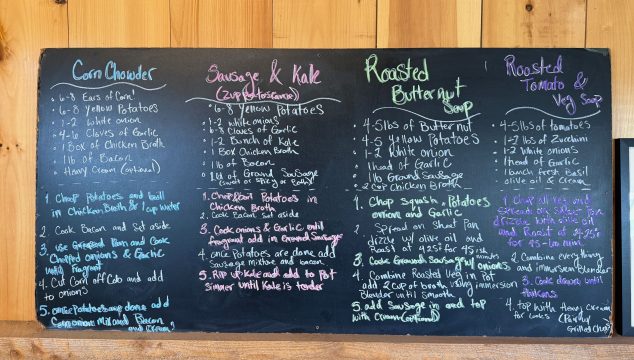 Corn Chowder
• 6-8 Ears of Corn!
• 6-8 Yellow Potatoes
• 1-2 White onion
• 4-6 Cloves of Garlic
• 1 Box of Chicken Broth
• 1 lb of Bacon
• Heavy Cream (optional)
1. Chop Potatoes and boil
in Chicken Broth & 1 cup water
2. Cook Bacon and set aside
3. use Pan and Cook
Chopped onions & Garlic
until fragrant
4. Cut Corn off Cob and add
to onions
5. once Potatoes are done add
Corn onion Mix and Bacon
and Cream
Sausage & Kale
• 6-8 Yellow POTATOES
• 1-2 white onions
• 6-8 Cloves of Garlic
• 1-2 Bunch of Kale
• 1 Box Chicken Broth
• 1 lb of Bacon
• 1 lb of Ground Sausage
(sweet or spicy or Both)
1. Chop/boil Potatoes in
Chicken Broth
2. Cook Bacon set aside
3. Cook onions & Garlic until
fragrant add in Ground Sausage
4. once Potatoes are done add
Sausage mixture and bacon
5. Rip up Kale and add to Pot
Simmer until Kale is tender
Roasted
Butternut
Soup
• 4-5 lbs of Butternut
• 4-5 yellow Potatoes
• 1-2 White Onion
• 1 head of Garlic
• 1 lb Ground Sausage
• 2 cup Chicken Broth
1. Chop Squash, Potatoes
onion and Garlic
2. Spread on Sheet Pan
dizzy w/ olive oil and
Roast at 425° for 45 minutes
3. Cook Ground Sausage w/ onions
4. Combine Roasted Veg in Pot
add 2 cup of broth using immersion
blender until smooth
5. add Sausage and top
with Cream (optional)
Roasted
Tomato &
Veg Soup
• 4-5 lbs of tomatoes
lbs of Zucchini
• 1-2 White onions
• 1 head of Garlic
• 1 bunch fresh Basil
• olive oil & Cream
1. Chop all veg and
Spread on Sheet Pan
drizzle with olive oil
and Roast at 425°
for 45-60 min
2. Combine every thing
and immersion blender
3. Cook down until
thickens
4. top with Heavy Cream